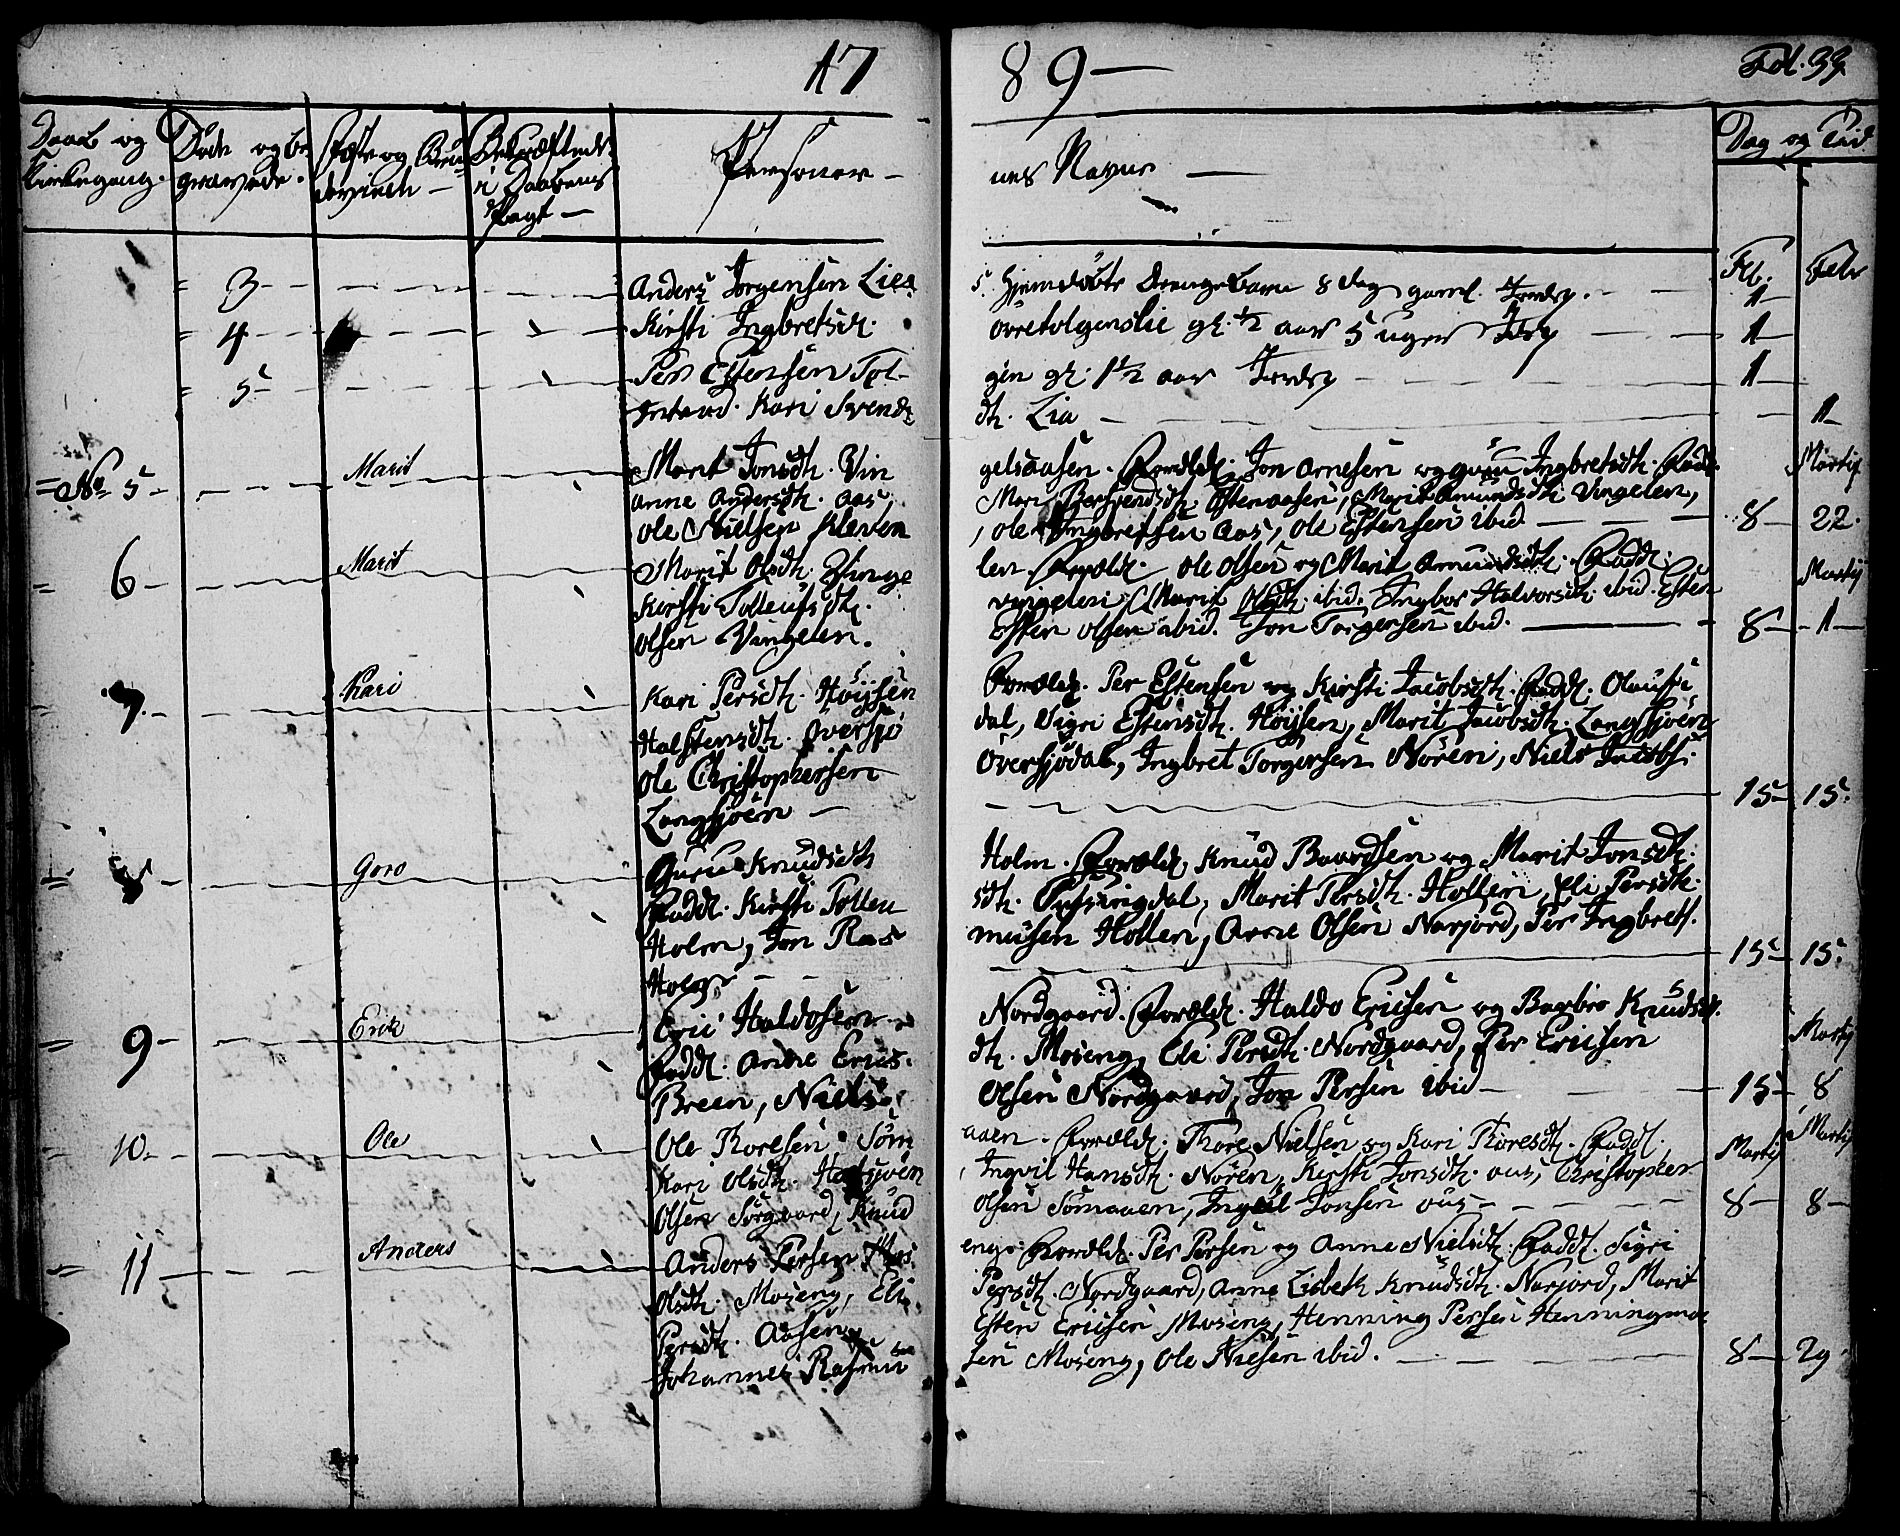 17 89 — Fol. 33
Daab og Kirkegang.
Døde og begravede.
Fæste og Brudevielse —
Bekræftede i Daabens Pagt —
Personer — nes Navne —
Dag og Tid
Feb. Febr
3 Anders Jorgensen Lies Hjemdøbte Drengebarn 8 dag gaml. Jordf. 1
4 Kirsti Ingbretsdr. Øvretolgenslie gl. ½ aar 5 uger Jordf 1
5 Per Estensen Tol- gen gl. 1½ aar Jordf 1
Kari Svends dtr. Lia — 1
No 5 Marit Marit Jonsdtr. Vin gelsaasen. Forældr. Jon Arnesen og Guru Ingbretsdtr. Fadd. Martij
Anne Andersdtr. Aas Mari Estenaasen, Marit Amundsdtr Vingelen,
Ole Nielsen Kleven, Ole Ingbretsen Aas, Ole Estensen ibid — 8 22.
6 Marit Marit Olsdtr. Vinge len. Forældr. Ole Olsen og Marit Amundsdtr. Fadd. Martij
Kirsti Tollefsdtr. Vingelen, Marit Olsdtr. ibid. Ingbor Halvorsdtr. ibid. Esten
Olsen Vingelen. Esten Olsen ibid. Jon Torgersen ibid. — 8 — 1 —
7. Kari Kari Persdtr. Høijsen Forældr. Per Estensen og Kirsti Jacobsdtr. Fadd.
Halstensdtr. Øversjø dal, Sigri Estensdtr. Høijsen, Marit Jacobsdtr. Langsjøen
Ole Christophersen Øversjødal, Ingbret Torgersen Nøren, Niels Jacobs.
Langsjøen — 15 — 15.
8 Goro Guru Knudsdtr Holm. Forældr. Knud Baardsen og Marit Jonsdtr.
Fadd. Kirsti Tollen sdtr. Tufsingdal, Marit Persdtr. Hollen, Eli Persdtr.
Holm, Jon Ras musen Hollen, Arne Olsen Narjord, Per Ingbrets.
Holm — 15 15.
9 Erik Eric Haldosen Nordgaard. Forældr. Haldo Ericsen og Barbro Knudsdr.
Fadd. Anne Erics dtr. Moseng, Eli Persdtr. Nordgaard, Per Ericsen Martij
Breen, Niels Olsen Nordgaard, Jon Persen ibid — 15 8
10. Ole Ole Thoresen Søm aaen. Forældr. Thore Nielsen og Kari Thoresdtr. Fadd. Martij Martij
Kari Olsdtr. Ingvil Hansdtr. Nøren, Kirsti Jonsdtr. Aas, Christopher
Olsen Sørgaard, Knud Olsen Sømaaen, Jonsen Aas — 8 — 8 —
11 Anders Anders Persen Mos enge. Forældr. Per Persen og Anne Nielsdtr. Fadd. Sigri
Olsdtr. Moseng, Eli Persdtr. Nordgaard, Anne Lisbeth Knudsdtr. Narjord, Marit
Persdtr. Aasen, Esten Ericsen Moseng, Henning Persen Henningmo
Johannes Rasmus sen Moseng, Ole Nielsen ibid. — 8 — 29